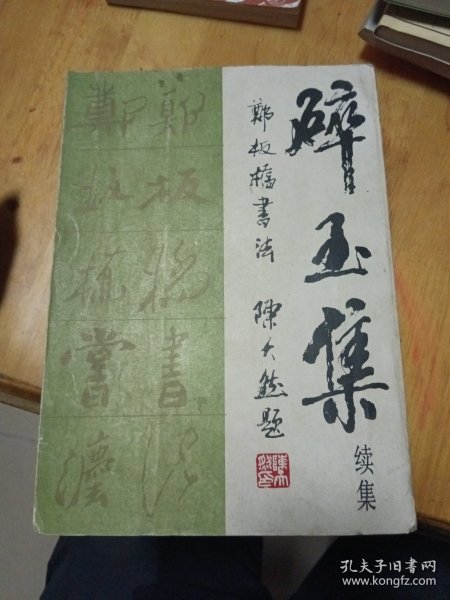 碎玉集
续集
鄭板橋書法 陳大然题
鄭板橋書法
鄭板橋書法
孔夫子旧书网
www.kongfz.com